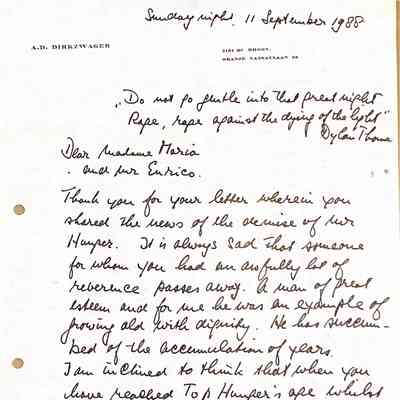 Sunday night, 11 September 1988
A.D. DIRKZWAGER
3161 HC RHOON,
ORANJE NASSAULAAN
„Do not go gentle into that great night
Rage, rage against the dying of the light"
Dylan Thomas
Dear Madame Maria
and Mr Enrico.
Thank you for your letter wherein you
shared the news of the demise of Mr
Hunger. It is always sad that someone
for whom you had an awfully lot of
reverence passes away. A man of great
esteem and for me he was an example of
growing old with dignity. He has succum-
bed of the accumulation of years.
I am inclined to think that when you
have reached Hunger's age whilst